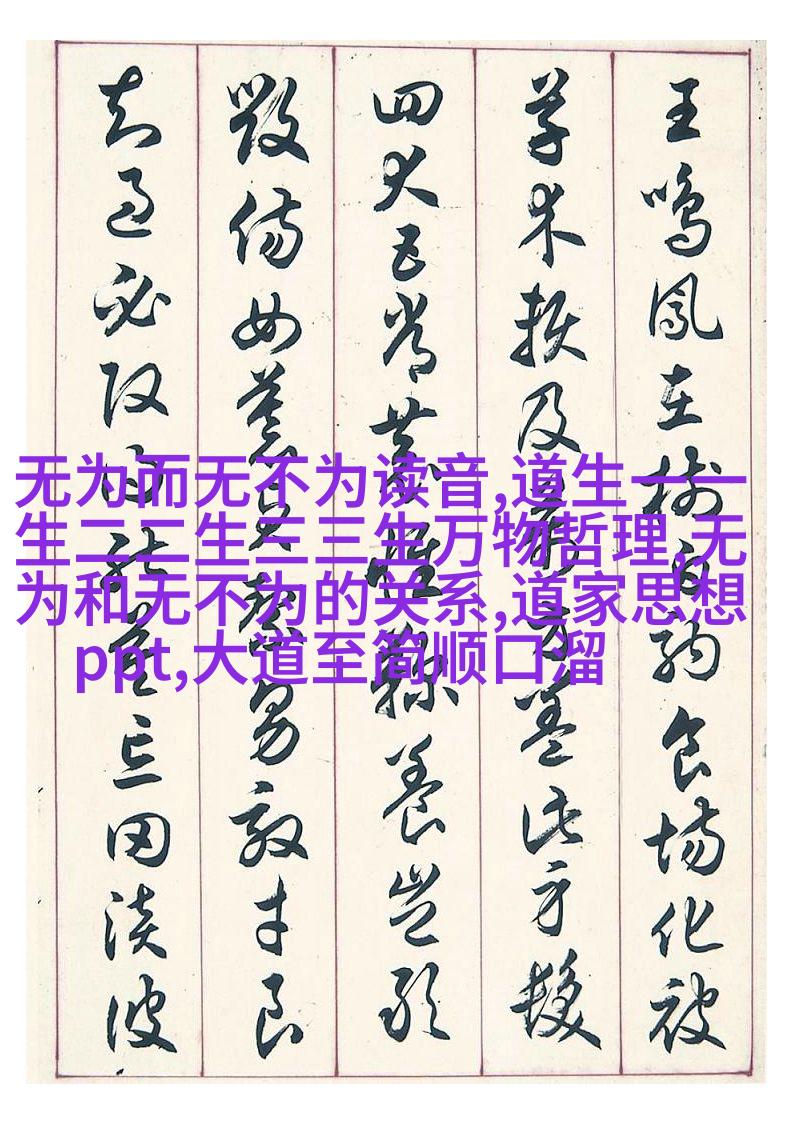 无为而无不为读音,道生一一
生二二生三三生万物哲理,无
为和无不为的关系,道家思想
ppt,大道至简顺口溜
王鳴鳳在樹白駒食場化被
草木賴及萬方蓋此身髮
四大五常恭惟鞠養豈敢
毀傷女慕貞絜男效才良
知過必改得能莫忘罔談彼